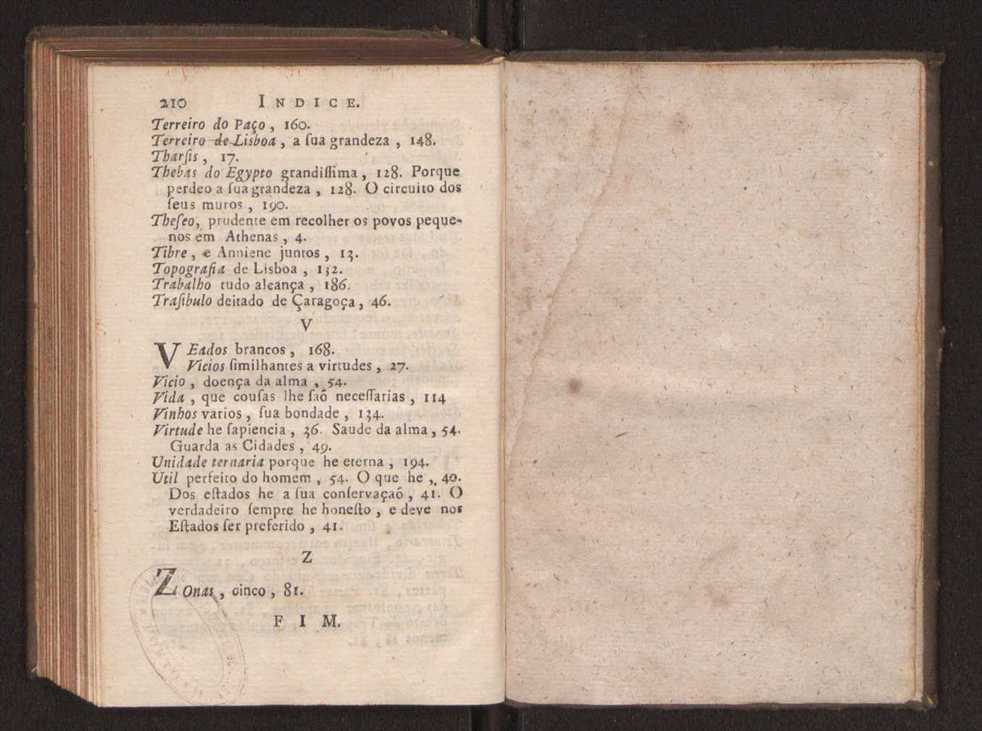 210 INDICE.
Terreiro do Paço, 160.
Terreiro de Lisboa, a ſua grandeza, 148.
Tharſis, 17.
Thebas do Egypto grandiſſima, 128. Porque
perdeo a ſua grandeza, 128. O circuito dos
ſeus muros, 190.
Theſeo, prudente em recolher os povos peque-
nos em Athenas, 4.
Tibre, e Anniene juntos, 13.
Topografia de Lisboa, 132.
Trabalho tudo alcança, 186.
Traſibulo deitado de Çaragoça, 46.
V
VEados brancos, 168.
Vicios ſimilhantes a virtudes, 27.
Vicio, doença da alma, 54.
Vida, que couſas lhe ſaõ neceſſarias, 114
Vinhos varios, ſua bondade, 134.
Virtude he ſapiencia, 36. Saude da alma, 54.
Guarda as Cidades, 49.
Unidade ternaria porque he eterna, 194.
Util perfeito do homem, 54. O que he, 40.
Dos eſtados he a ſua conſervaçaõ, 41. O
verdadeiro ſempre he honeſto, e deve nos
Eſtados ſer preferido, 41.
Z
ZOnas, cinco, 81.
FIM.